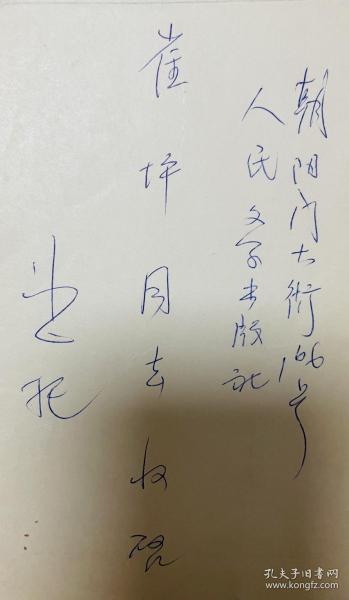 朝阳门大街166号
人民文学出版社
崔坪同志收启
孔夫子旧书网